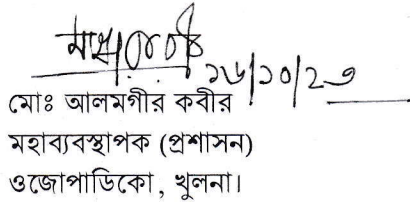 ১৬/১০/২৩
মোঃ আলমগীর কবীর
মহাব্যবস্থাপক (প্রশাসন)
ওজোপাডিকো, খুলনা।